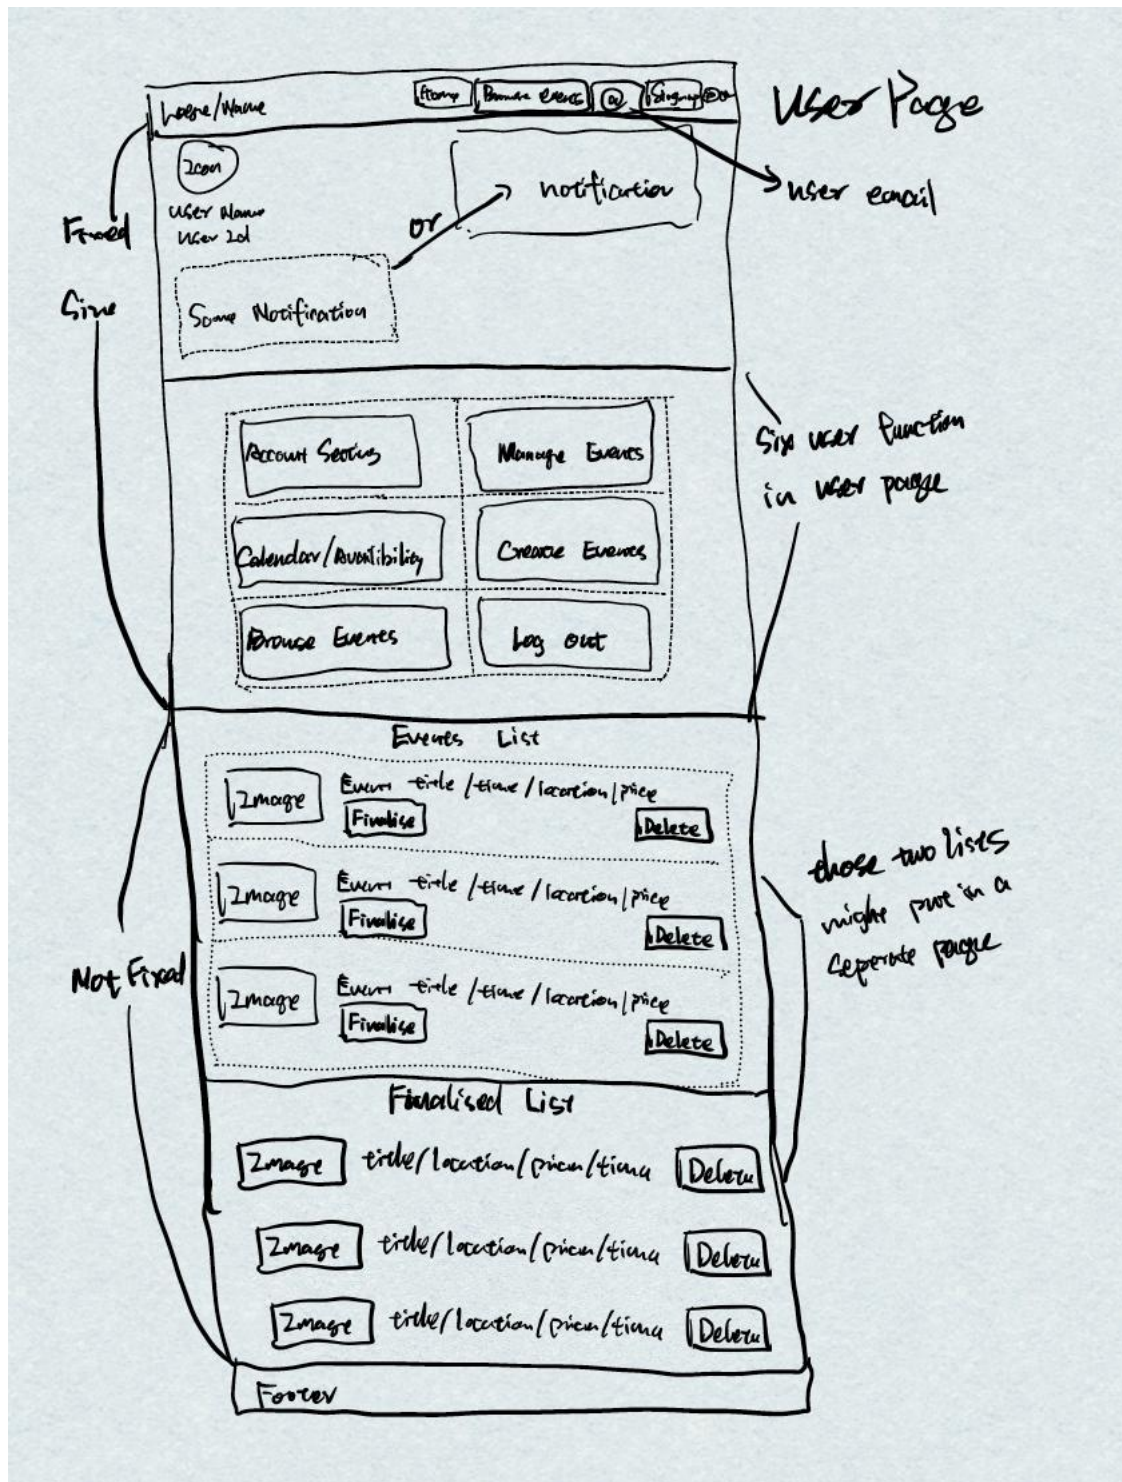 User Page
Logo/Name
Home
Browse events
@
user email
Icon
User Name
User Id
or
notification
Some Notification
Fixed
Size
Account Setting
Manage Events
Calendar/Avaitibility
Create Events
Browse Events
Log out
Six user function
in user page
Events List
Image
Event title/time/location/price
Finalise
Delete
Image
Event title/time/location/price
Finalise
Delete
Image
Event title/time/location/price
Finalise
Delete
Not Fixed
those two lists
might put in a
seperate page
Finalised List
Image
title/location/price/time
Delete
Image
title/location/price/time
Delete
Image
title/location/price/time
Delete
Footer